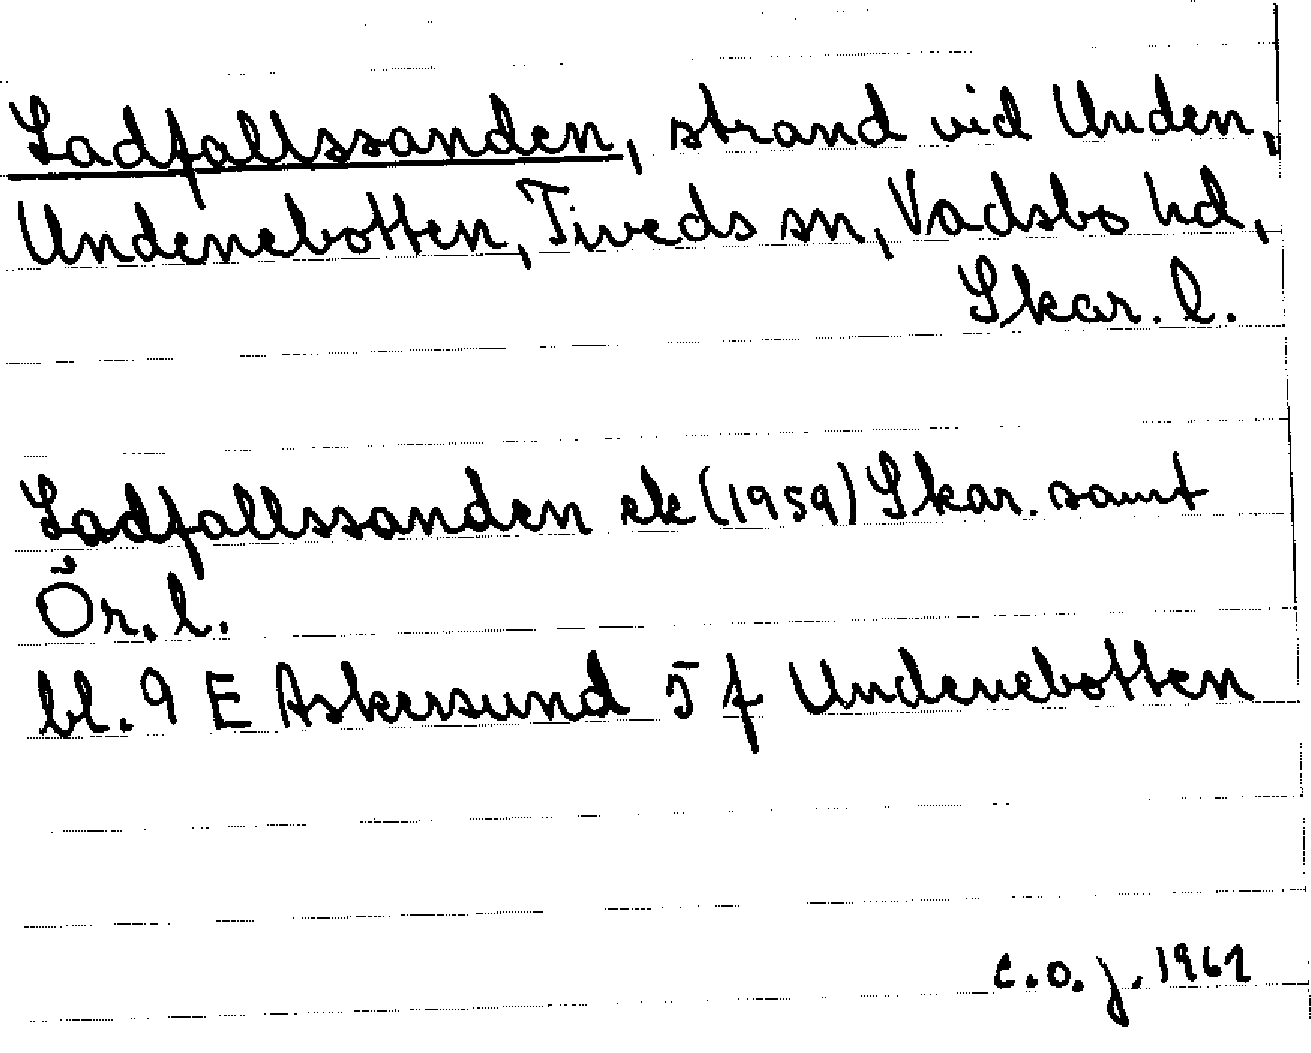 Ladfallssanden, strand vid Unden,
Undenebotten, Tiveds sn, Vadsbo hd,
Skar. l.
Ladfallssanden ek (1959) Skar. samt
Ör. l.
bl. 9 E Askersund 5 f Undenebotten
c.o.j. 1961